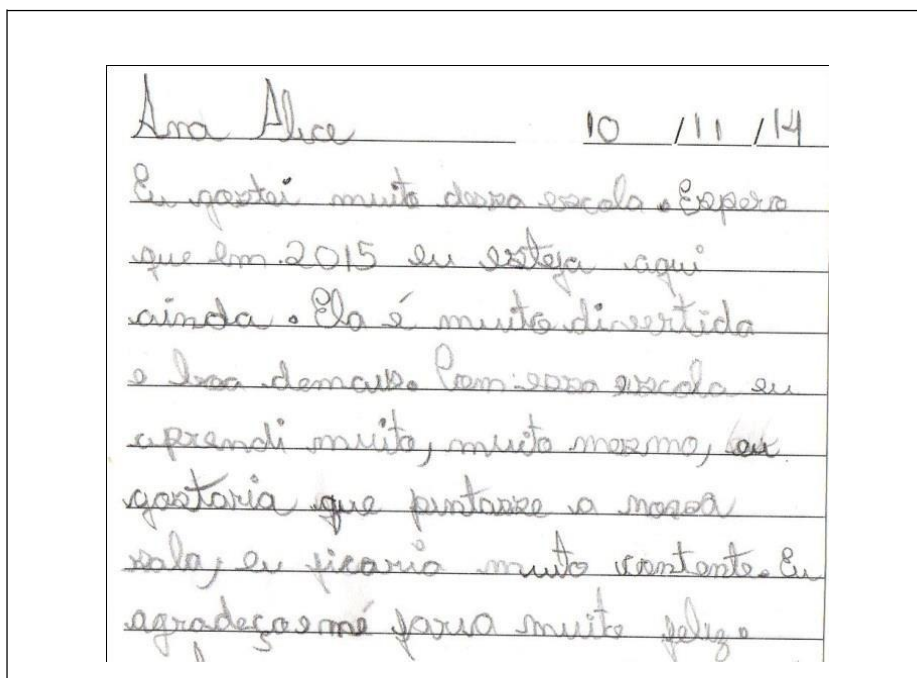 Ana Alice 10 /11 /14
Eu gostei muito dessa escola. Espero
que em 2015 eu esteja aqui
ainda. Ela é muito divertida
e boa demais. Com essa escola eu
aprendi muito, muito mesmo, eu
gostaria que pintasse a nossa
sala, eu ficaria muito contente. Eu
agradeço e mé faria muito feliz.